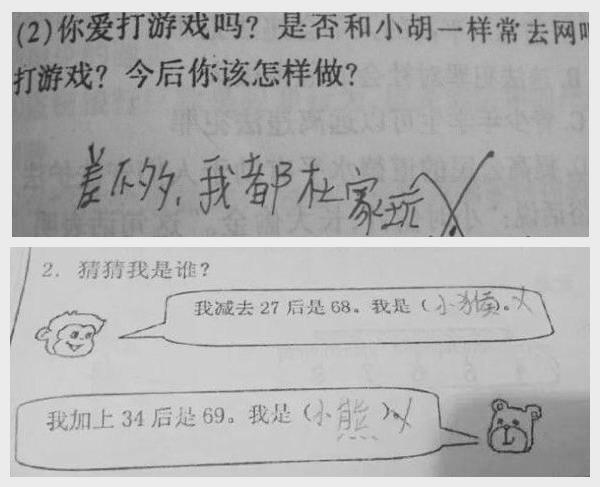 (2)你爱打游戏吗？是否和小胡一样常去网吧
打游戏？今后你该怎样做？
差不多，我都在家玩
2. 猜猜我是谁？
我减去 27 后是 68。我是（小猴。
我加上 34 后是 69。我是（小熊）。